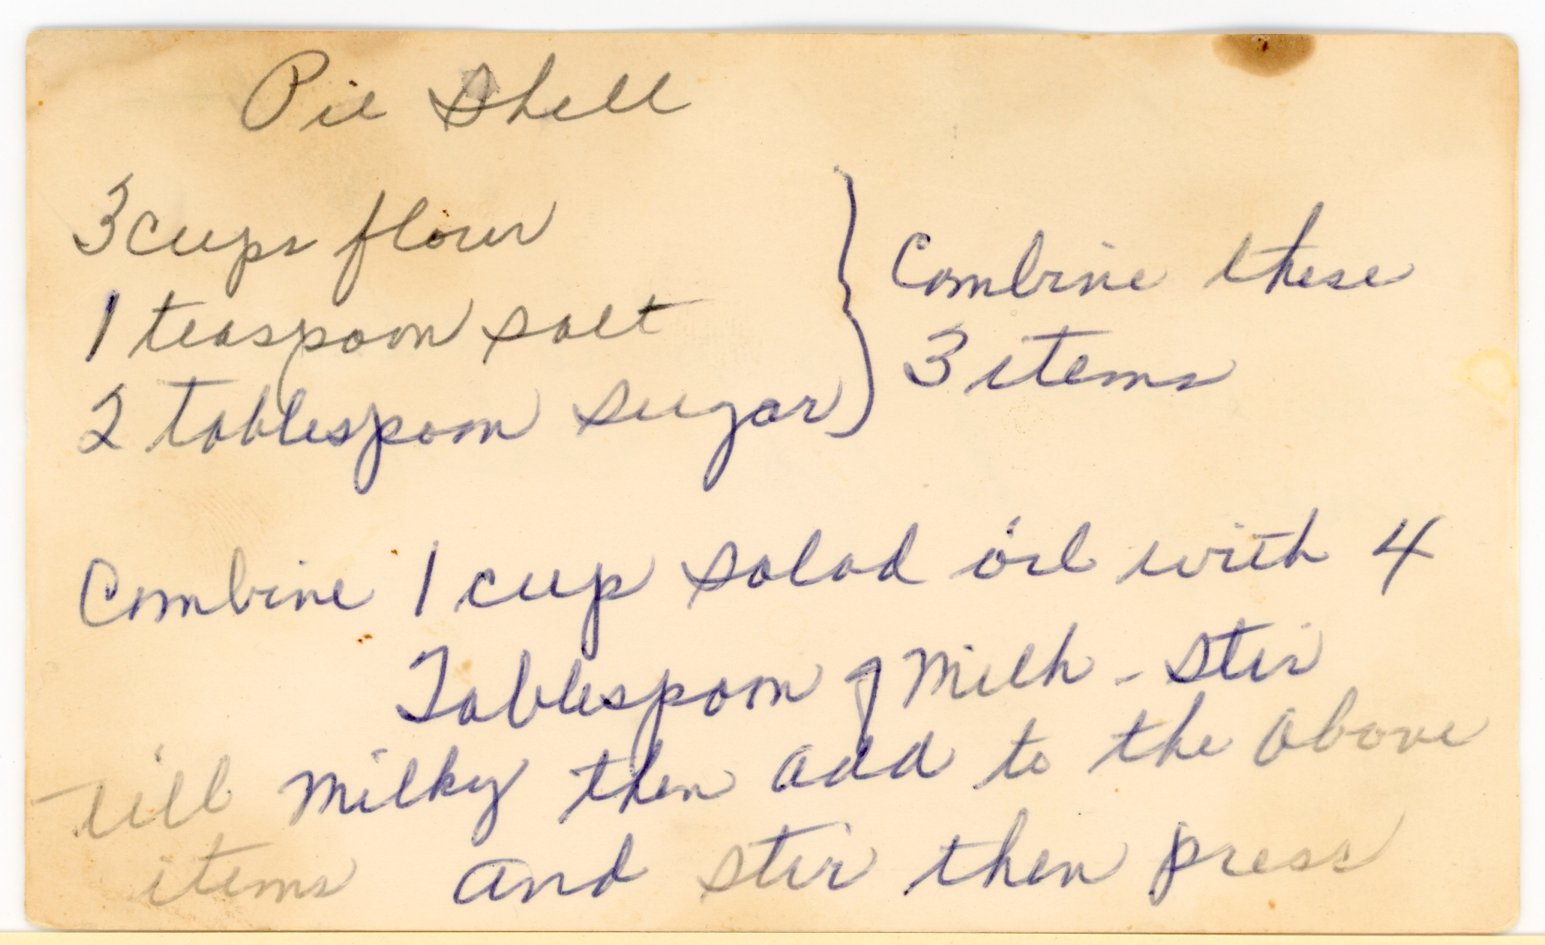 Pie Shell
3 cups flour
1 teaspoon salt
2 tablespoon sugar
Combine these
3 items
Combine 1 cup salad oil with 4
Tablespoon of Milk - Stir
till Milky then add to the above
items and stir then press